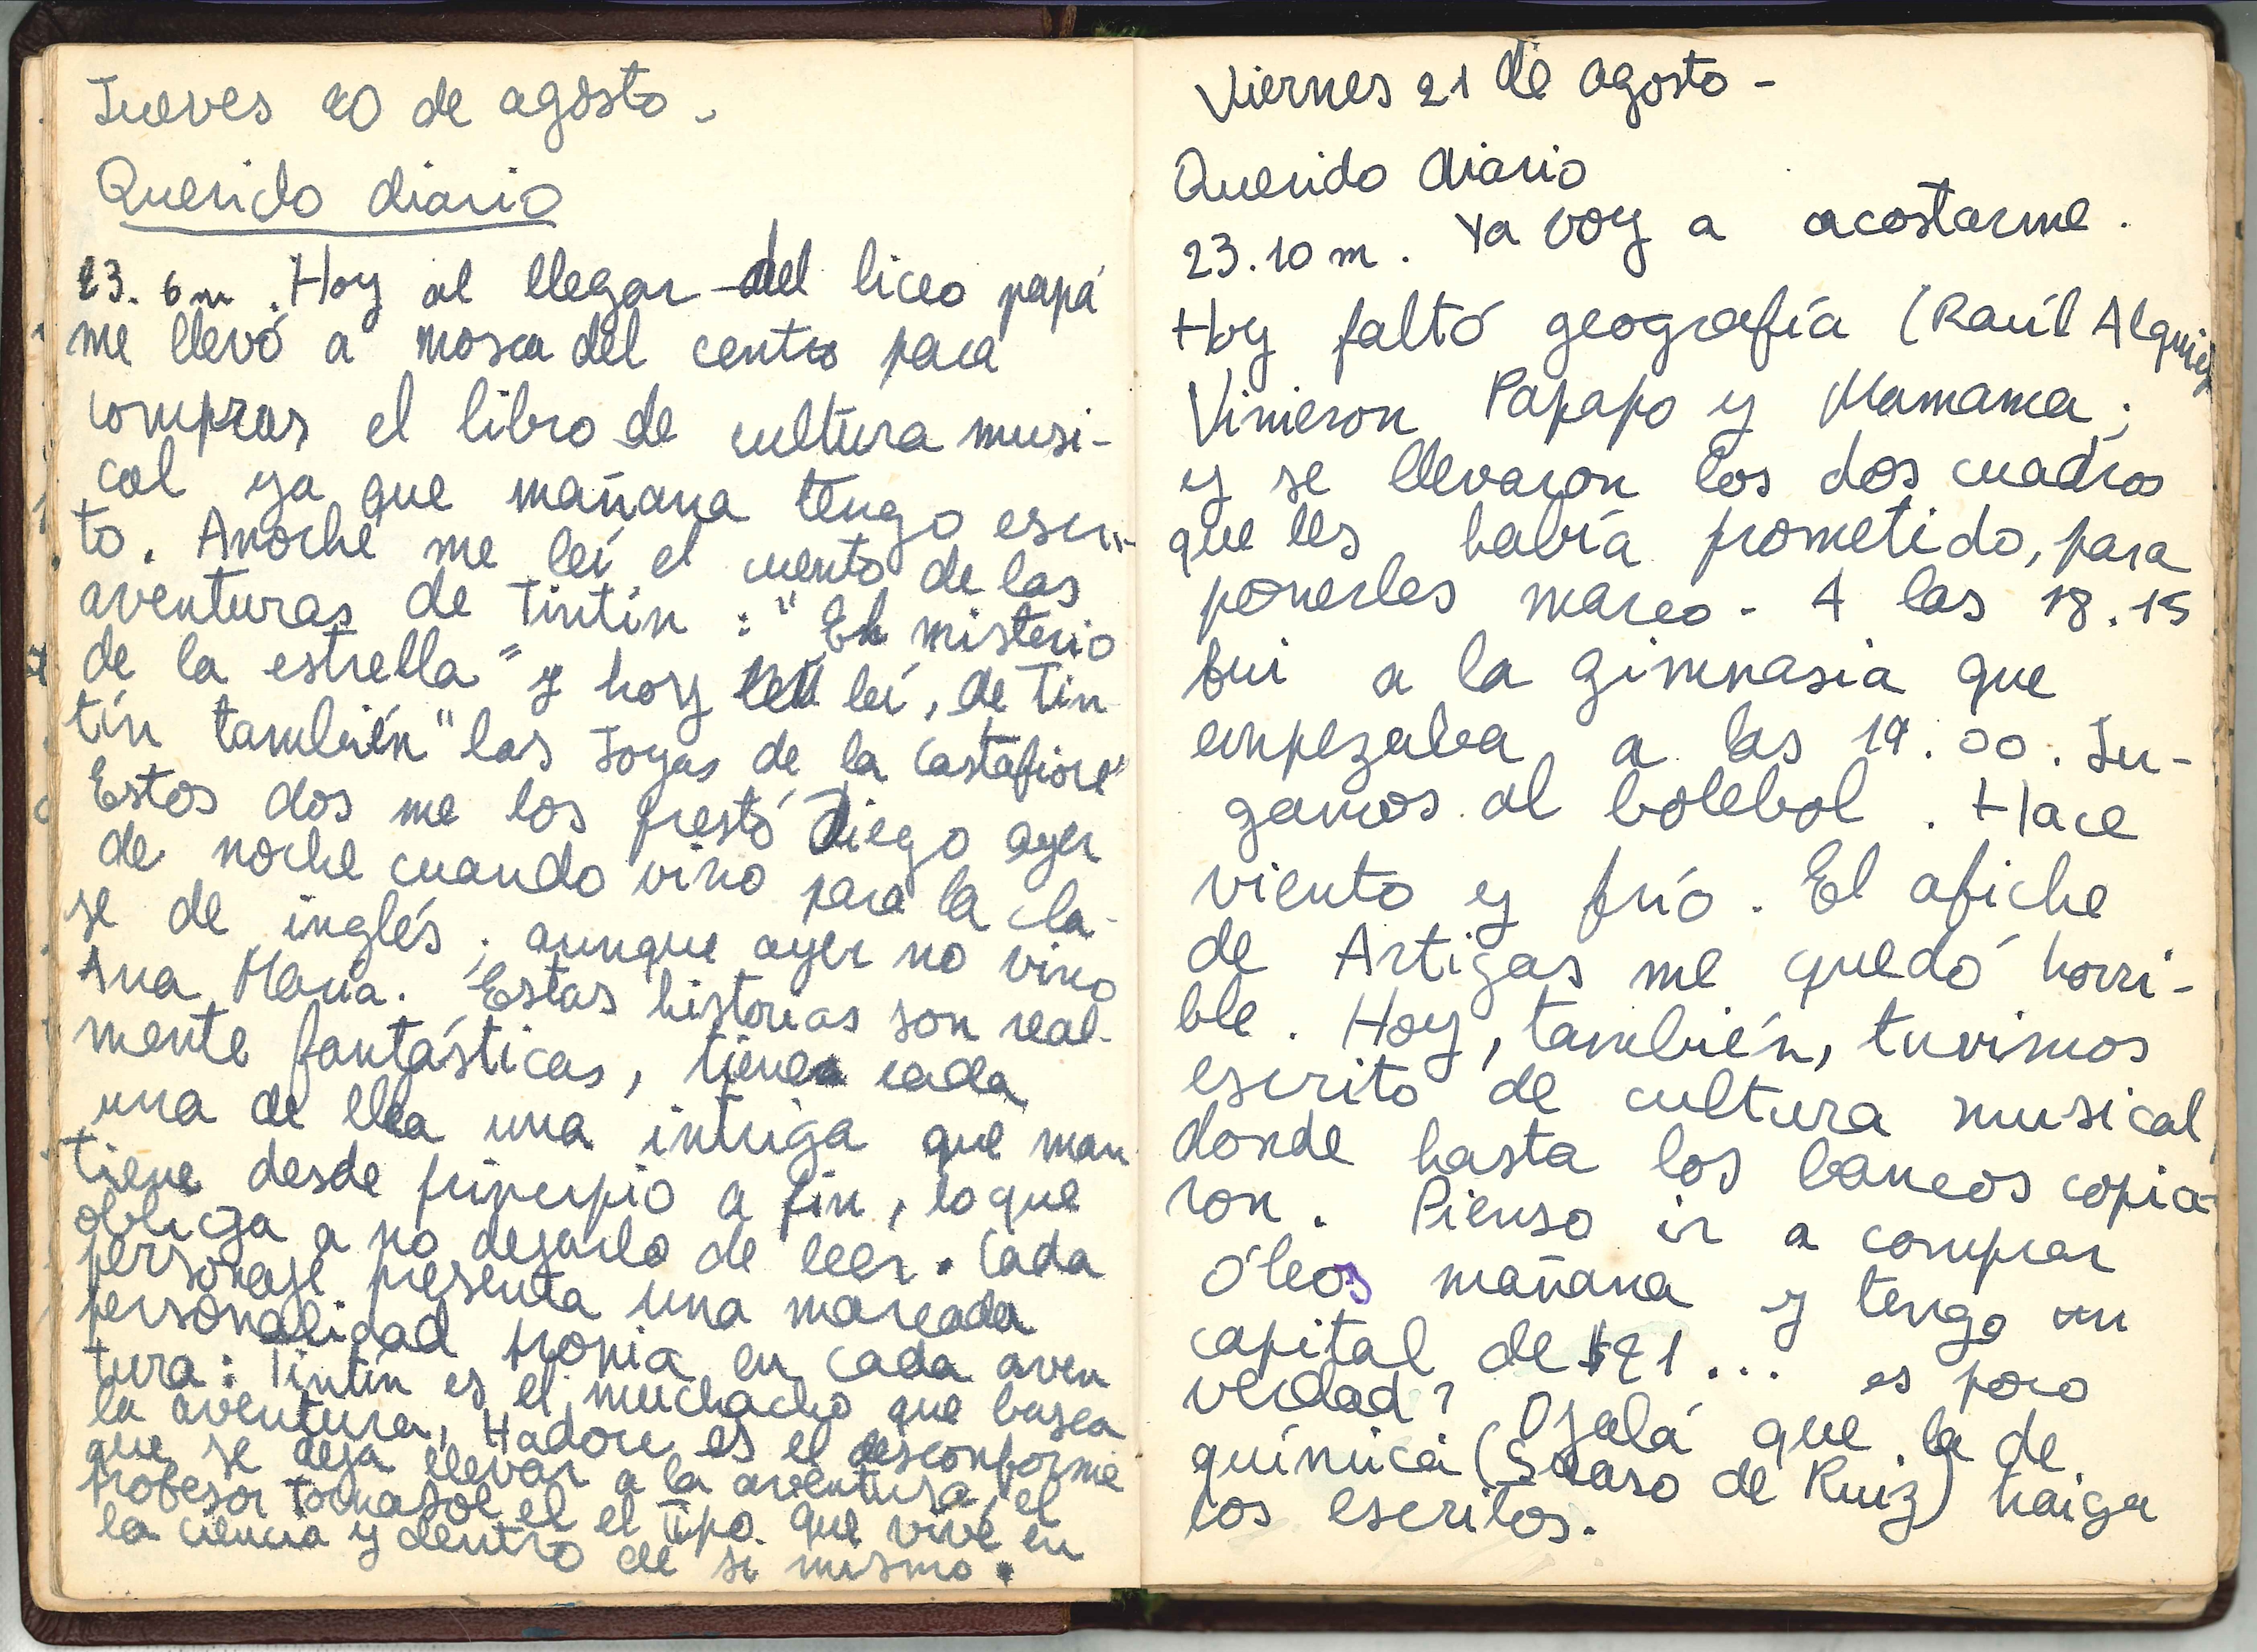 Jueves 20 de agosto.
Querido diario
23. 6 m. Hoy al llegar del liceo papá
me llevó a Mosca del centro para
comprar el libro de cultura musi-
cal ya que mañana tengo escri-
to. Anoche me leí el cuento de las
aventuras de Tintín : "El misterio
de la estrella" y hoy leí, de Tin
tín también "las Joyas de la Castafiore"
Estos dos me los prestó Diego ayer
de noche cuando vino para la cla-
se de inglés ; aunque ayer no vino
Ana María. Estas historias son real-
mente fantásticas, tiene cada
una de ella una intriga que man
tiene desde principio a fin, lo que
obliga a no dejarlo de leer. Cada
personaje presenta una marcada
personalidad propia en cada aven
tura: Tintín es el muchacho que busca
la aventura, Hadoc es el desconforme
que se deja llevar a la aventura, el
profesor Tornasol el el tipo que vive en
la ciencia y dentro de si mismo.
Viernes 21 de agosto -
Querido diario
23.10 m. Ya voy a acostarme.
Hoy faltó geografía (Raúl
Vinieron Papapo y Mamama ;
y se llevaron los dos cuadros
que les había prometido, para
ponerles marco - A las 18.15
fui a la gimnasia que
empezaba a las 19.00. Ju-
gamos al bolebol. Hace
viento y frío. El afiche
de Artigas me quedó horri-
ble. Hoy, también, tuvimos
escrito de cultura musical,
donde hasta los bancos copia-
ron. Pienso ir a comprar
óleos mañana y tengo un
capital de $21... es poco
verdad? Ojalá que la de
química ( de Ruiz) haiga
los escritos.